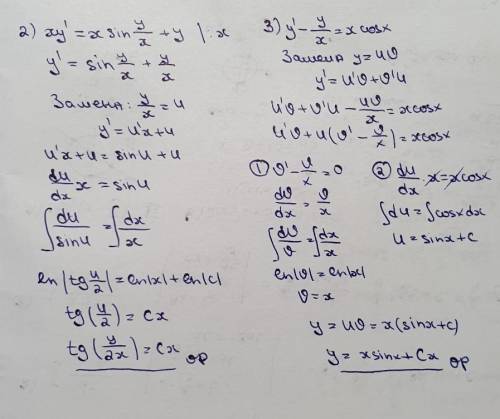 2) xy' = x sin y/x + y | :x
y' = sin y/x + y/x
Замена: y/x = u
y' = u'x + u
u'x + u = sin u + u
du/dx x = sin u
∫ du/sin u = ∫ dx/x
ln |tg u/2| = ln|x| + ln|c|
tg(u/2) = Cx
tg(y/2x) = Cx ор
3) y' - y/x = x cosx
Замена y = uϑ
y' = u'ϑ + ϑ'u
u'ϑ + ϑ'u - uϑ/x = x cosx
u'ϑ + u(ϑ' - ϑ/x) = x cosx
① ϑ' - ϑ/x = 0
dϑ/dx = ϑ/x
∫ dϑ/ϑ = ∫ dx/x
ln|ϑ| = ln|x|
ϑ = x
② du/dx · x = x cosx
∫ du = ∫ cosx dx
u = sinx + c
y = uϑ = x(sinx + c)
y = x sinx + Cx ор